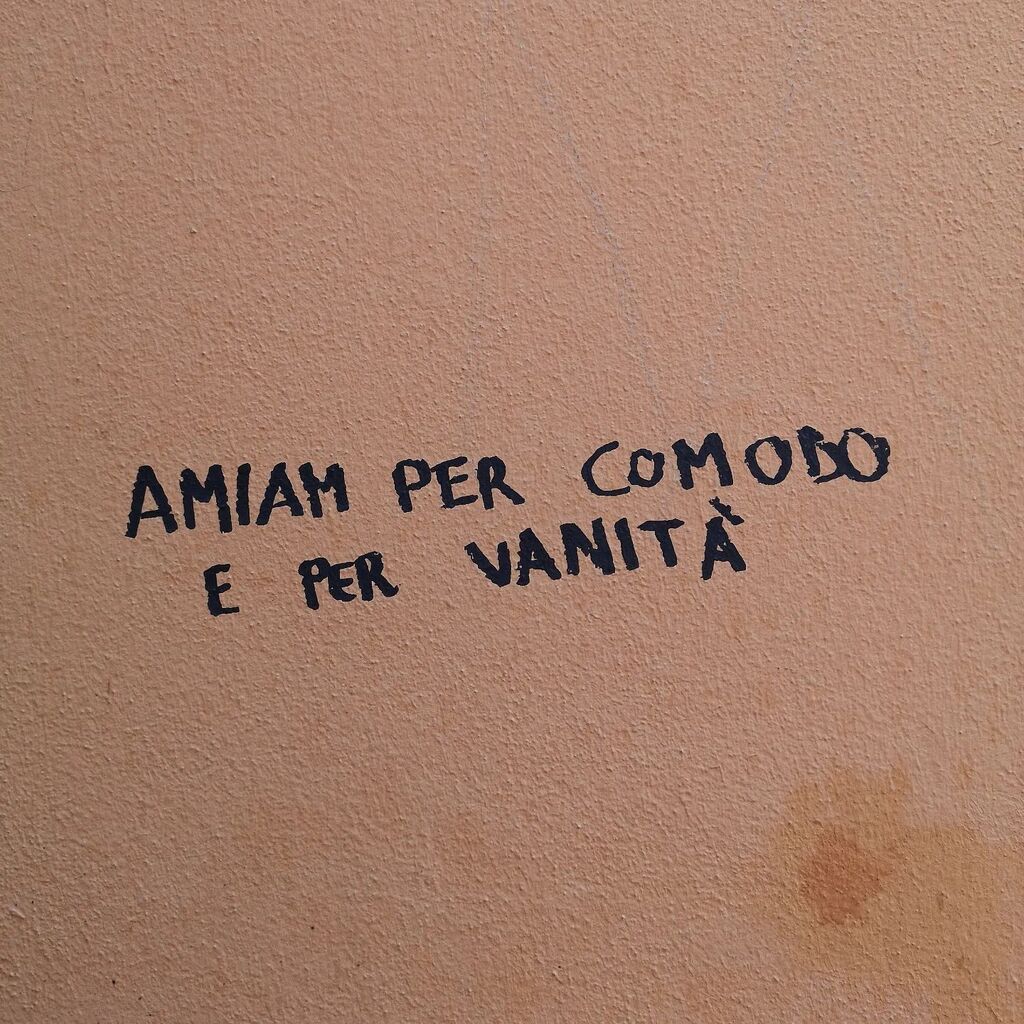 AMIAM PER COMODO
E PER VANITÀ